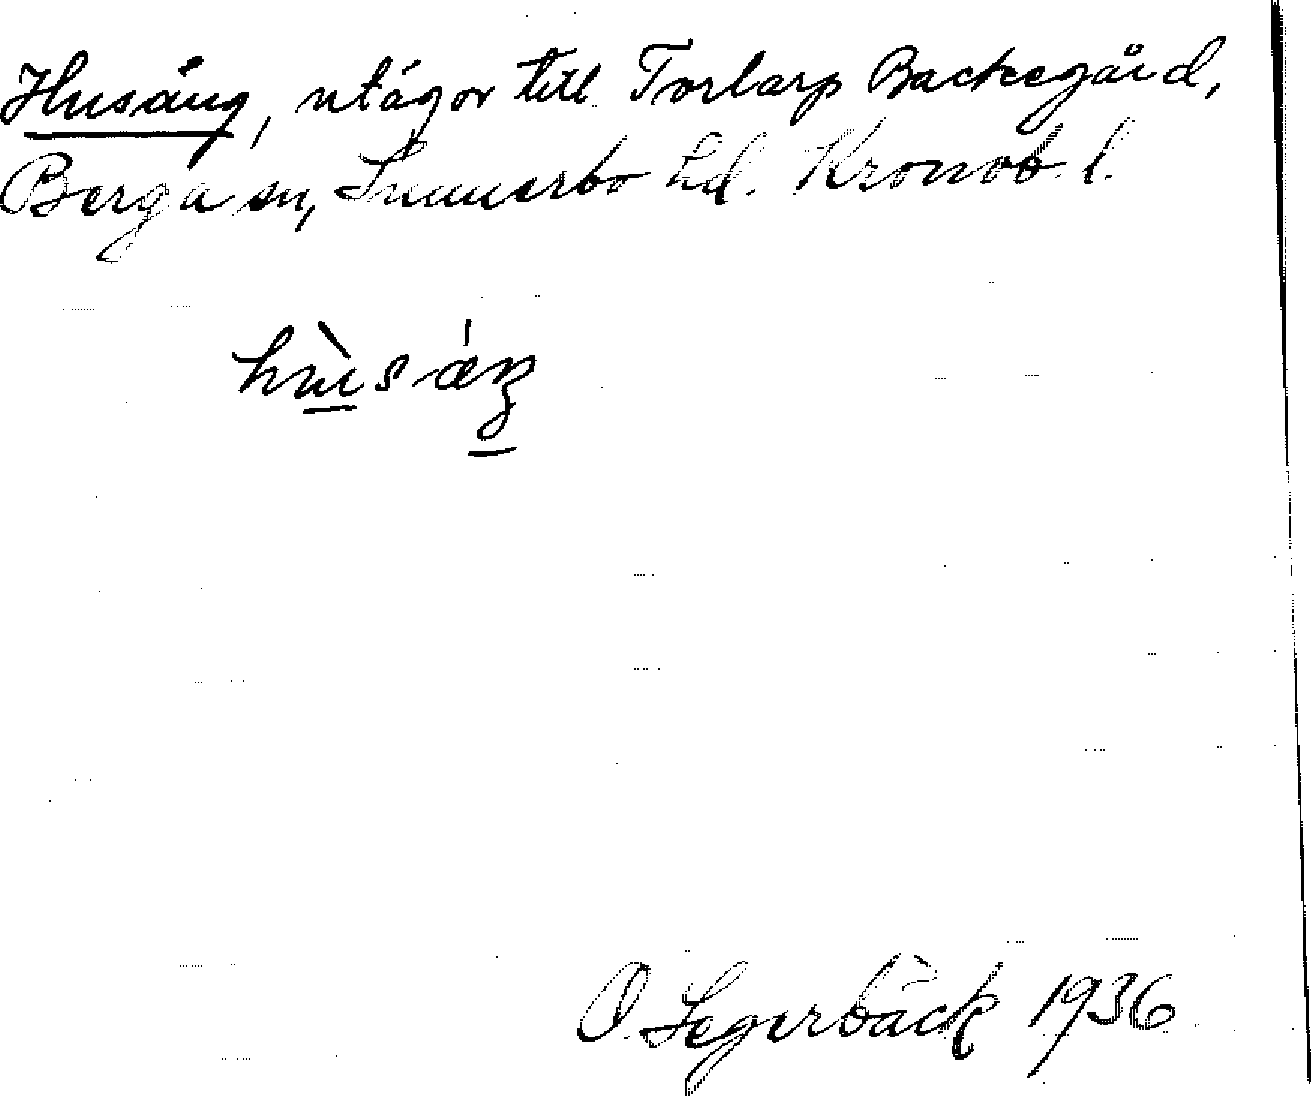 Husäng, utägor till Torlarp Backegård,
Berga sn, Sunnerbo hd. Kronob. l.
hùsǽŋ
O. Segerbäck 1936